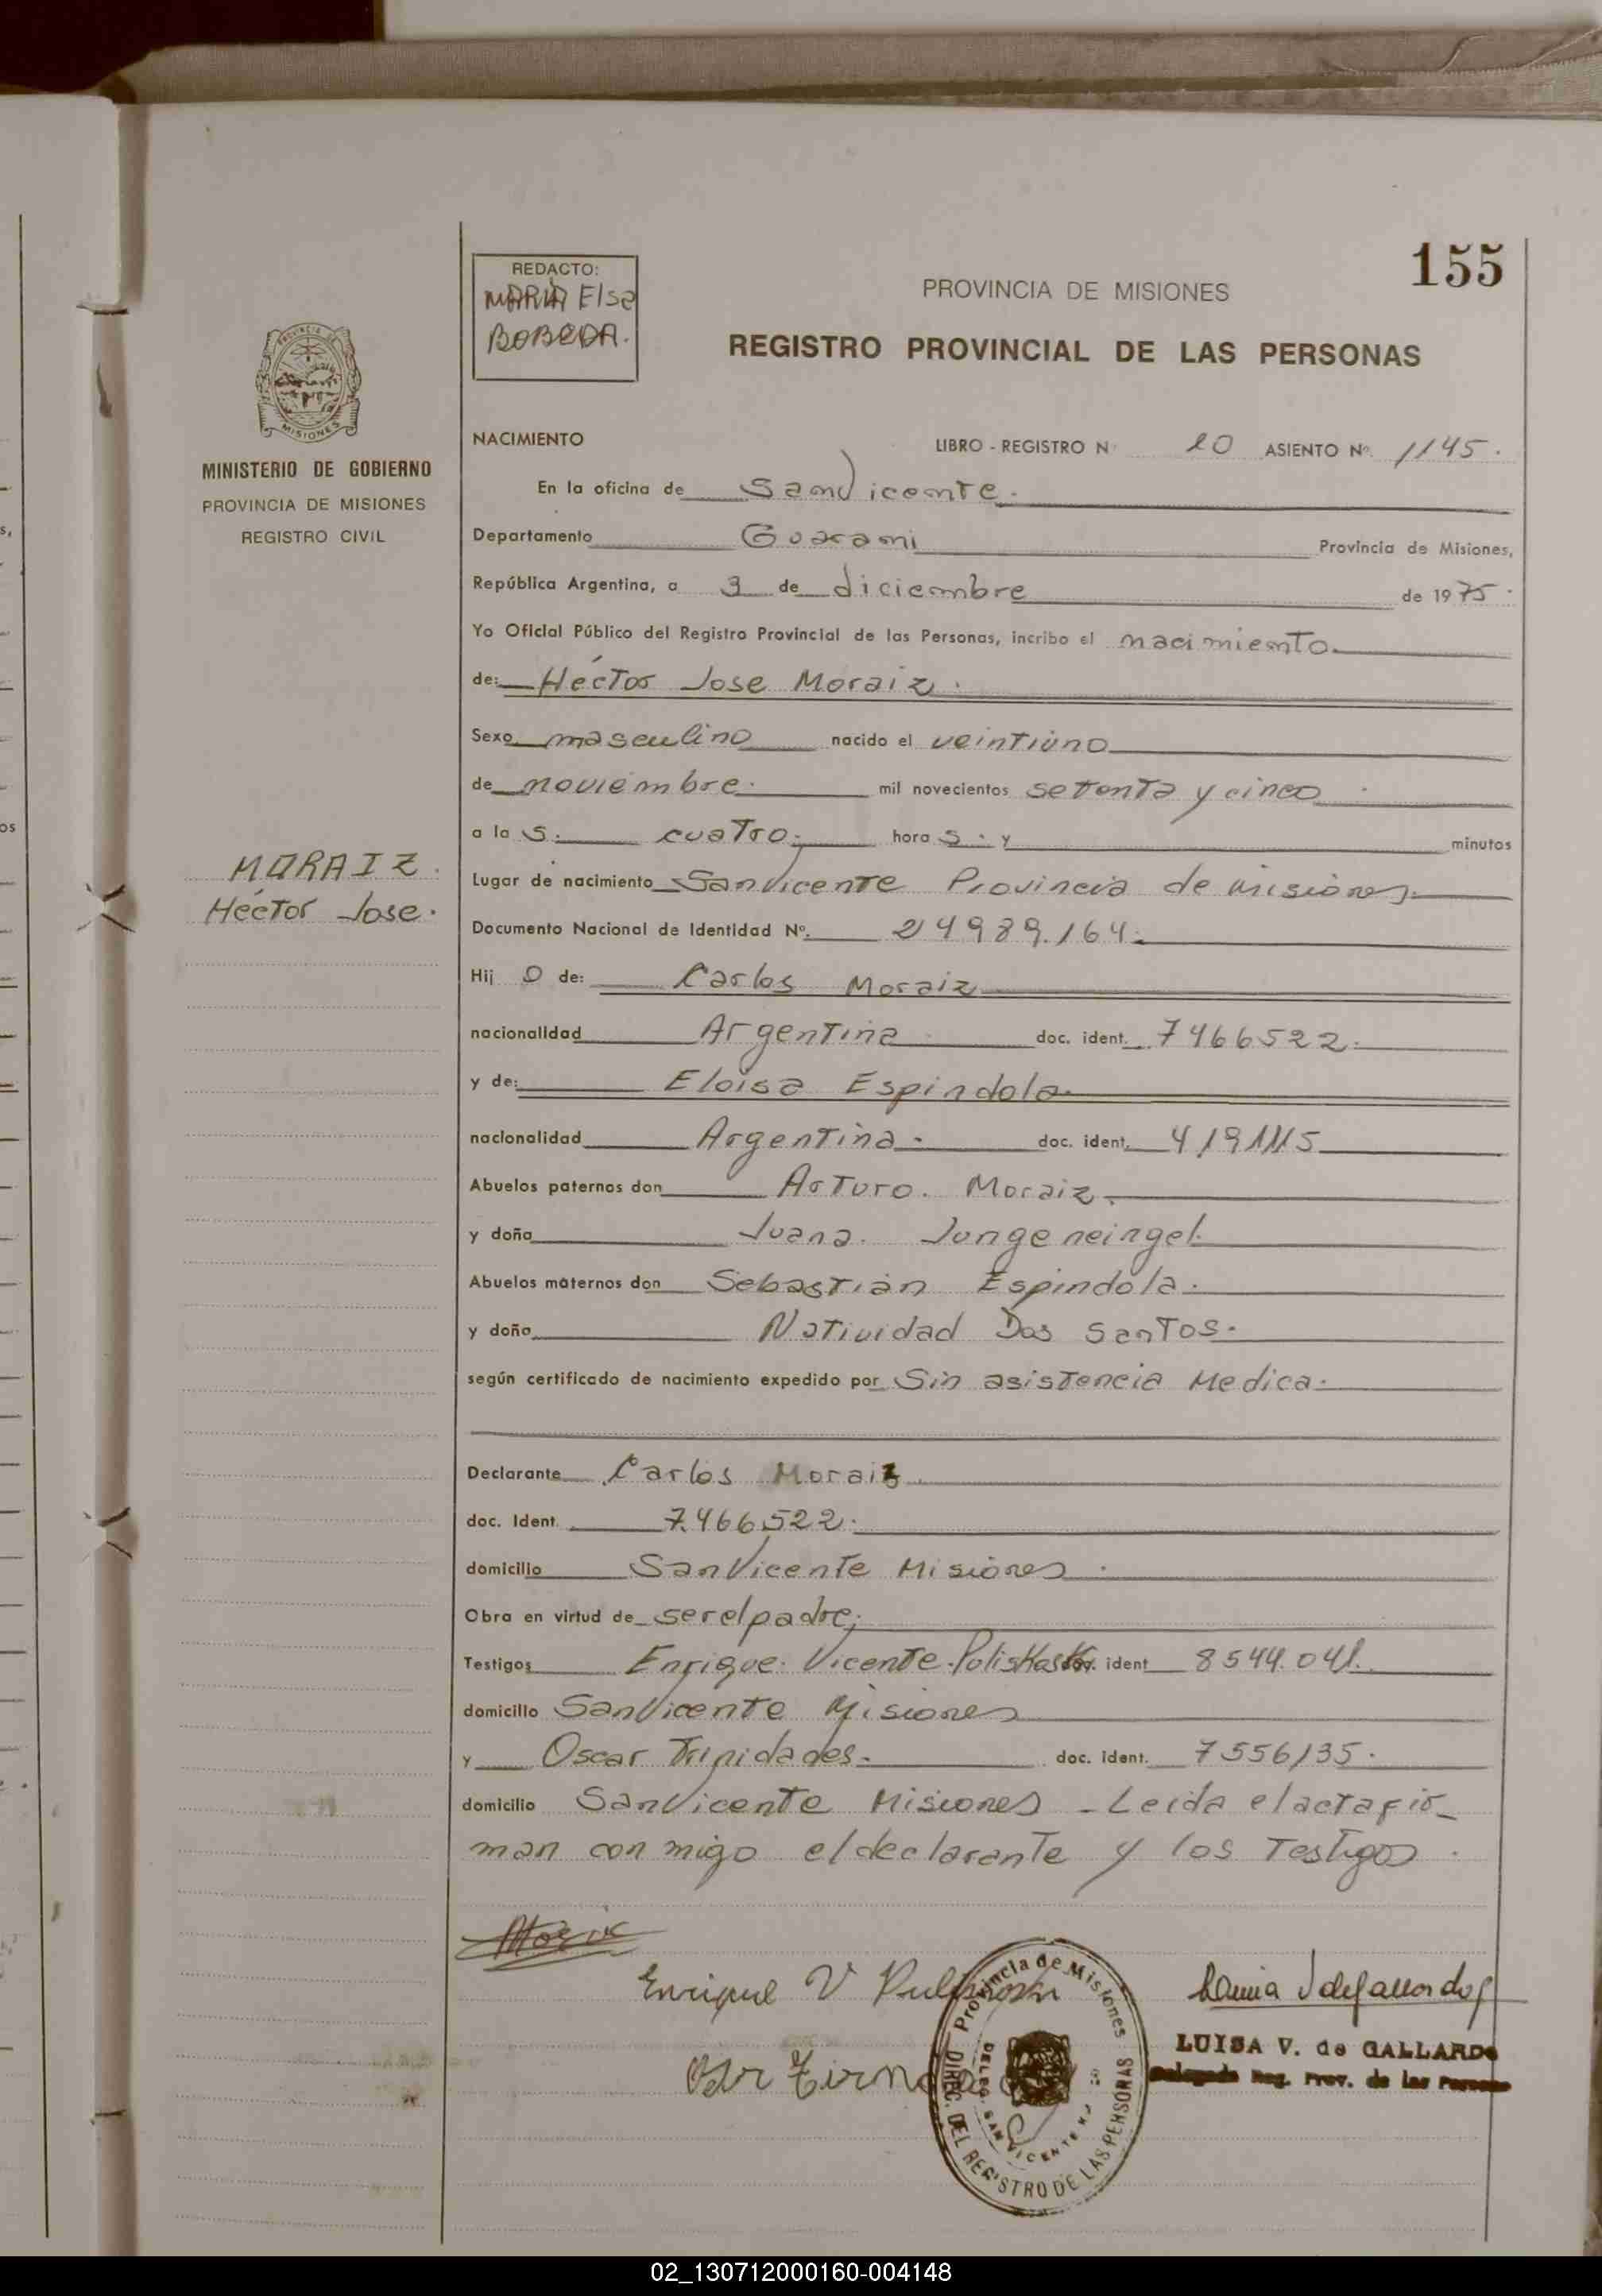 155
REDACTO:
MARIA Elsa
BOBEDA.
PROVINCIA DE MISIONES
REGISTRO PROVINCIAL DE LAS PERSONAS
PROVINCIA DE
MISIONES
MINISTERIO DE GOBIERNO
PROVINCIA DE MISIONES
REGISTRO CIVIL
NACIMIENTO LIBRO - REGISTRO N° 20 ASIENTO Nº. 1145.
En la oficina de San Vicente.
Departamento Guarani Provincia de Misiones,
República Argentina, a 3 de diciembre de 1975.
Yo Oficial Público del Registro Provincial de las Personas, incribo el nacimiento.
de: Héctor Jose Moraiz.
Sexo masculino nacido el veintiuno
de noviembre. mil novecientos setenta y cinco.
a la s. cuatro. hora s. y minutos
MORAIZ.
Héctor Jose.
Lugar de nacimiento San Vicente Provincia de Misiones.
Documento Nacional de Identidad Nº. 24989.164.
Hij o de: Carlos Moraiz
nacionalidad Argentina doc. ident. 7466522.
y de: Eloisa Espindola.
nacionalidad Argentina. doc. ident. 4191115
Abuelos paternos don Arturo. Moraiz.
y doña Juana. Jungeneingel.
Abuelos maternos don Sebastián Espindola.
y doña Natividad Dos Santos.
según certificado de nacimiento expedido por Sin asistencia Medica.
Declarante Carlos Moraiz.
doc. Ident. 7.466522.
domicilio San Vicente Misiones.
Obra en virtud de ser el padre,
Testigos Enrique. Vicente. doc. ident 8544.041.
domicilio San Vicente Misiones
y Oscar Trinidades. doc. ident. 7556135.
domicilio San Vicente Misiones - Leida el acta fir-
man con migo el declarante y los Testigos.
Enrique V
Provincia de Misiones
DELEG. SAN VICENTE
DIREC. DEL REGISTRO DE LAS PERSONAS
LUISA V. de GALLARDO
Delegada Reg. Prov. de las Personas
02_130712000160-004148